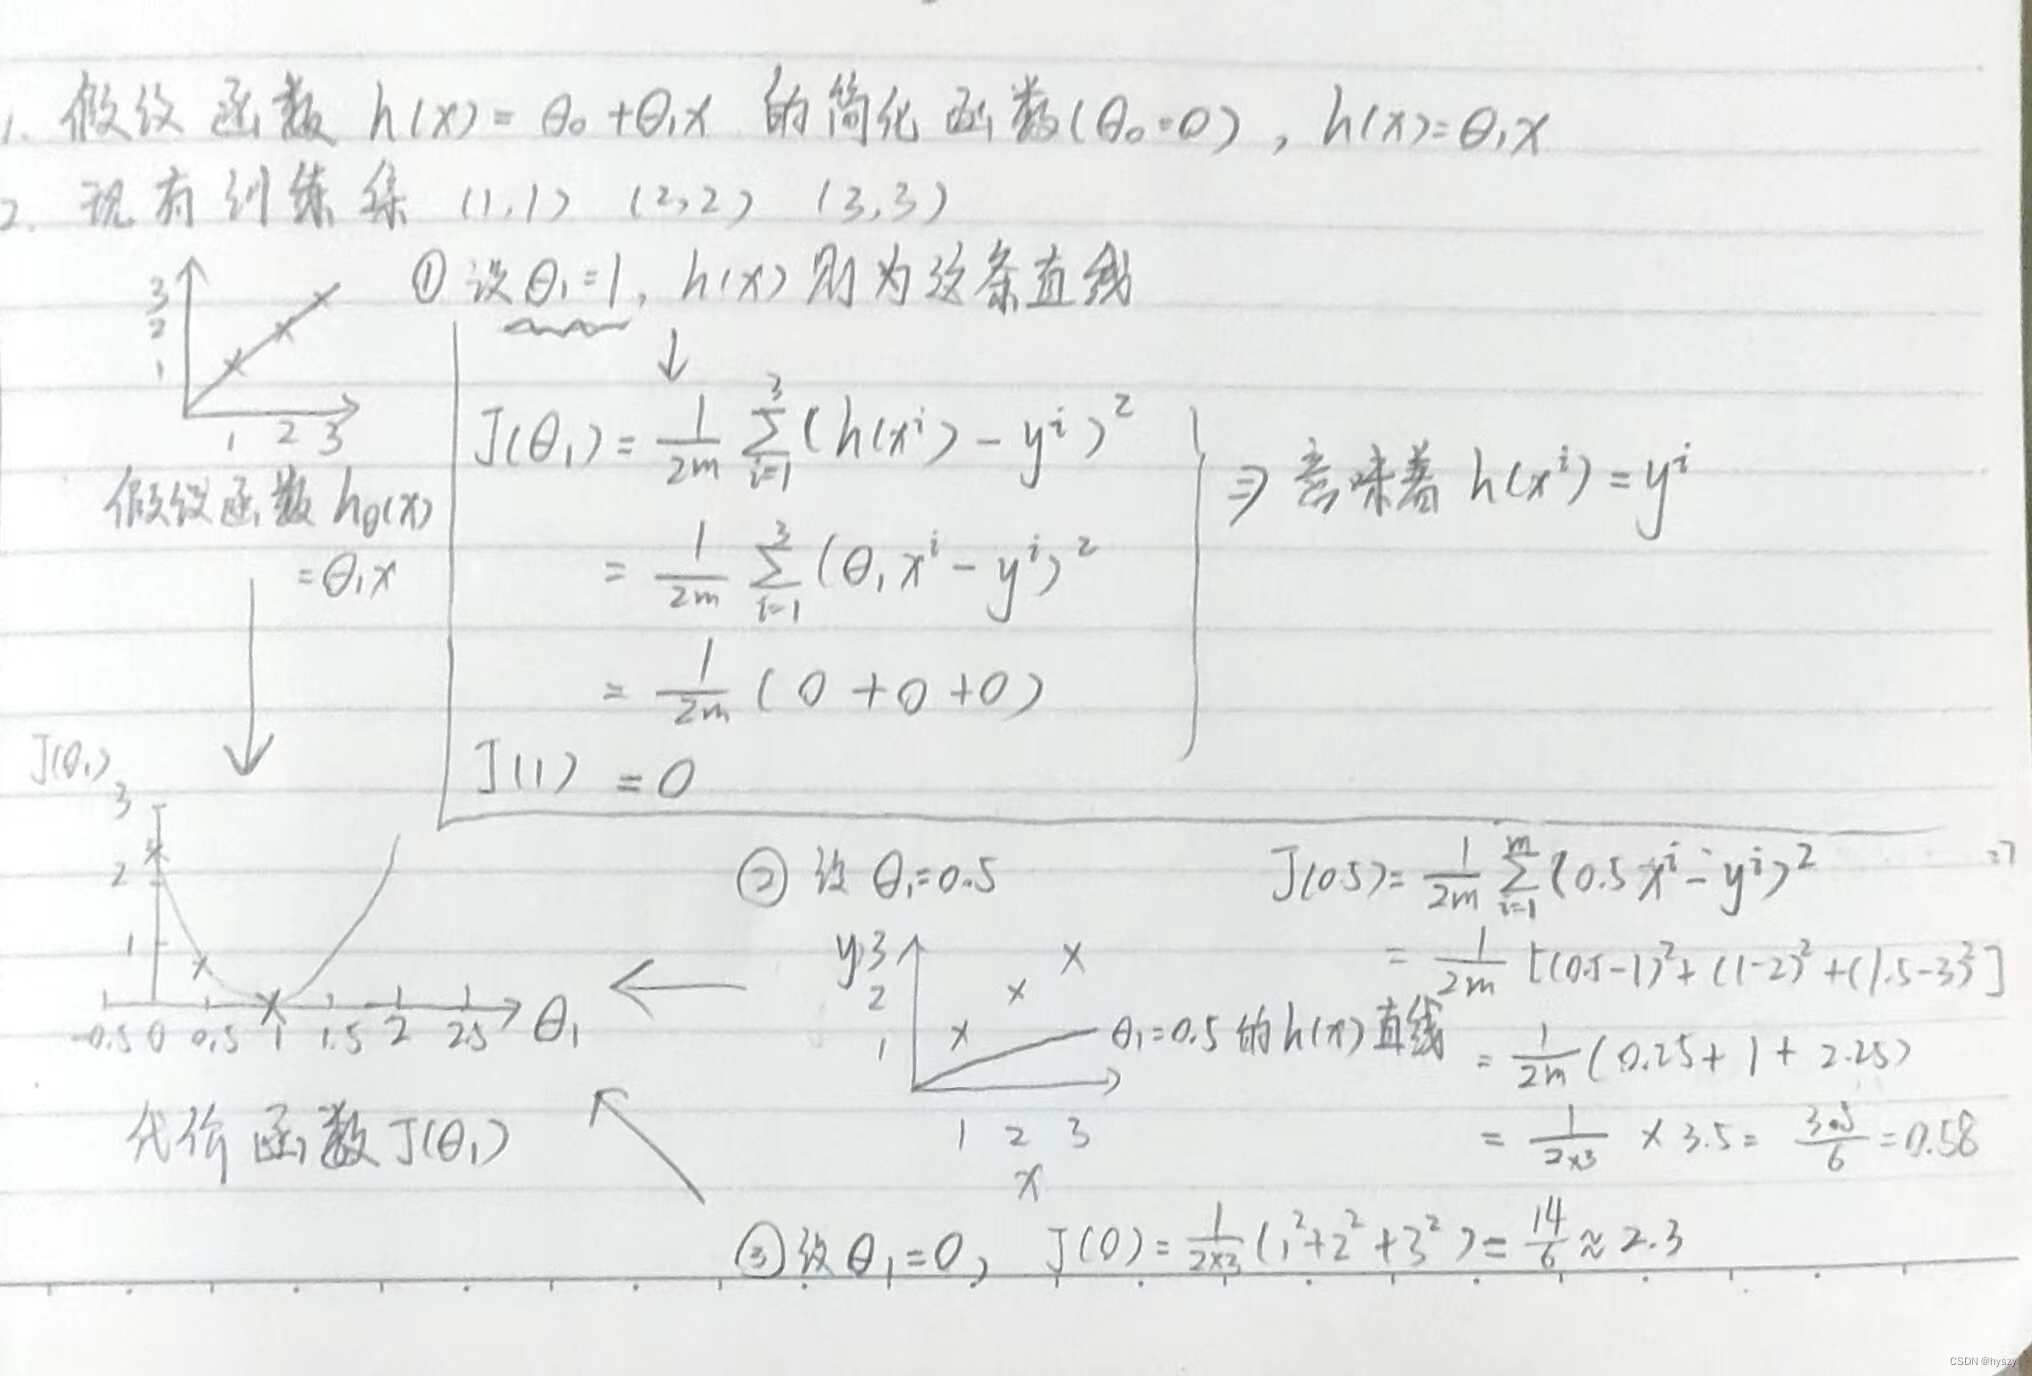 1. 假设函数 h(x)=θ₀+θ₁x 的简化函数(θ₀=0), h(x)=θ₁x
2. 现有训练集 (1,1) (2,2) (3,3)
① 设θ₁=1, h(x)则为这条直线
3
2
1
1 2 3
假设函数 hθ(x)
=θ₁x
↓
J(θ₁) = 1/2m ∑_{i=1}^{3} (h(xⁱ) - yⁱ)²
= 1/2m ∑_{i=1}^{3} (θ₁xⁱ - yⁱ)²
= 1/2m (0+0+0)
J(1) = 0
⇒ 意味着 h(xⁱ)=yⁱ
J(θ₁)
3
2
1
-0.5 0 0.5 1 1.5 2 2.5 θ₁
代价函数J(θ₁)
② 设 θ₁=0.5
y 3
2
1
1 2 3
x
θ₁=0.5 的h(x)直线
J(0.5) = 1/2m ∑_{i=1}^{m} (0.5xⁱ - yⁱ)²
= 1/2m [(0.5-1)²+(1-2)²+(1.5-3)²]
= 1/2m (0.25+1+2.25)
= 1/2×3 × 3.5 = 3.5/6 = 0.58
③ 设 θ₁=0, J(0) = 1/2×3 (1²+2²+3²) = 14/6 ≈ 2.3
CSDN @hyszy